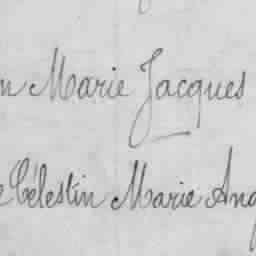 n Marie Jacques
e Célestin Marie Ang